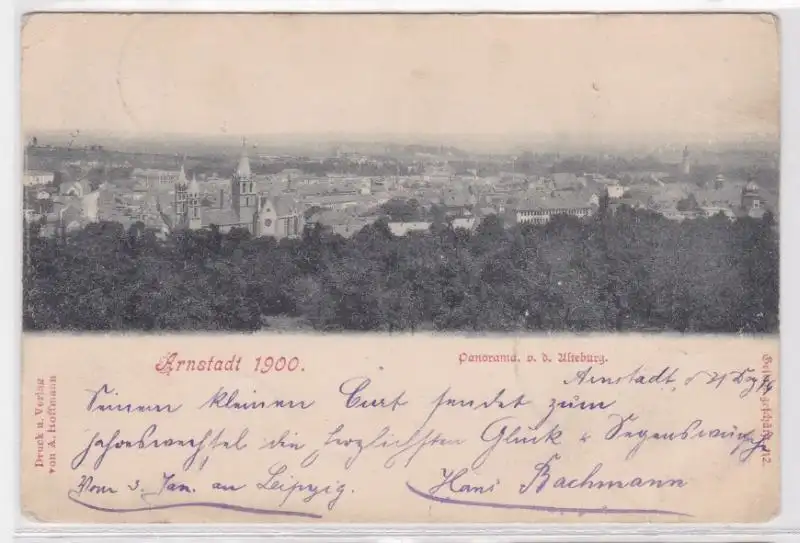 Arnstadt 1900.
Panorama. v. d. Alteburg.
Arnstadt, d 21 Dez
Seinem kleinen Curt sendet zum
Jahreswechsel die herzlichsten Glück & Segenswünsche
Vom 3. Jan. an Leipzig.
Hans Bachmann
Druck u. Verlag
von A. Hoffmann